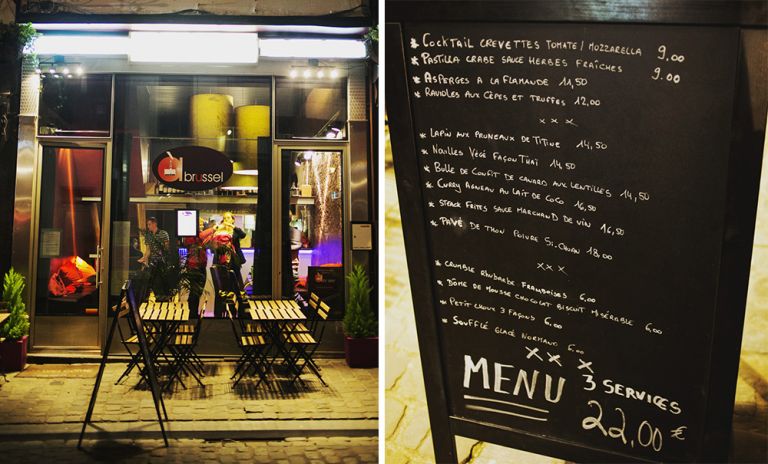 à
brussel
* COCKTAIL CREVETTES TOMATE / MOZZARELLA 9,00
* PASTILLA CRABE SAUCE HERBES FRAÎCHES 9.00
* ASPERGES A LA FLAMANDE 11,50
* RAVIOLES AUX CÈPES ET TRUFFES 12,00
x x x
* LAPIN AUX PRUNEAUX DE TITINE 14,50
* NOUILLES VÉGÉ FAÇON THAÏ 14,50
* BULLE DE CONFIT DE CANARD AUX LENTILLES 14,50
* CURRY AGNEAU AU LAIT DE COCO 16,50
* STEACK FRITES SAUCE MARCHAND DE VIN 16,50
* PAVÉ DE THON POIVRE 18,00
x x x
* CRUMBLE RHUBARBE FRAMBOISES 6,00
* DÔME DE MOUSSE CHOCOLAT BISCUIT MISÉRABLE 6,00
* PETIT CHOUX 3 FAÇONS 6,00
* SOUFFLÉ GLACÉ NORMAND 6,00
x x x
MENU 3 SERVICES
22,00 €